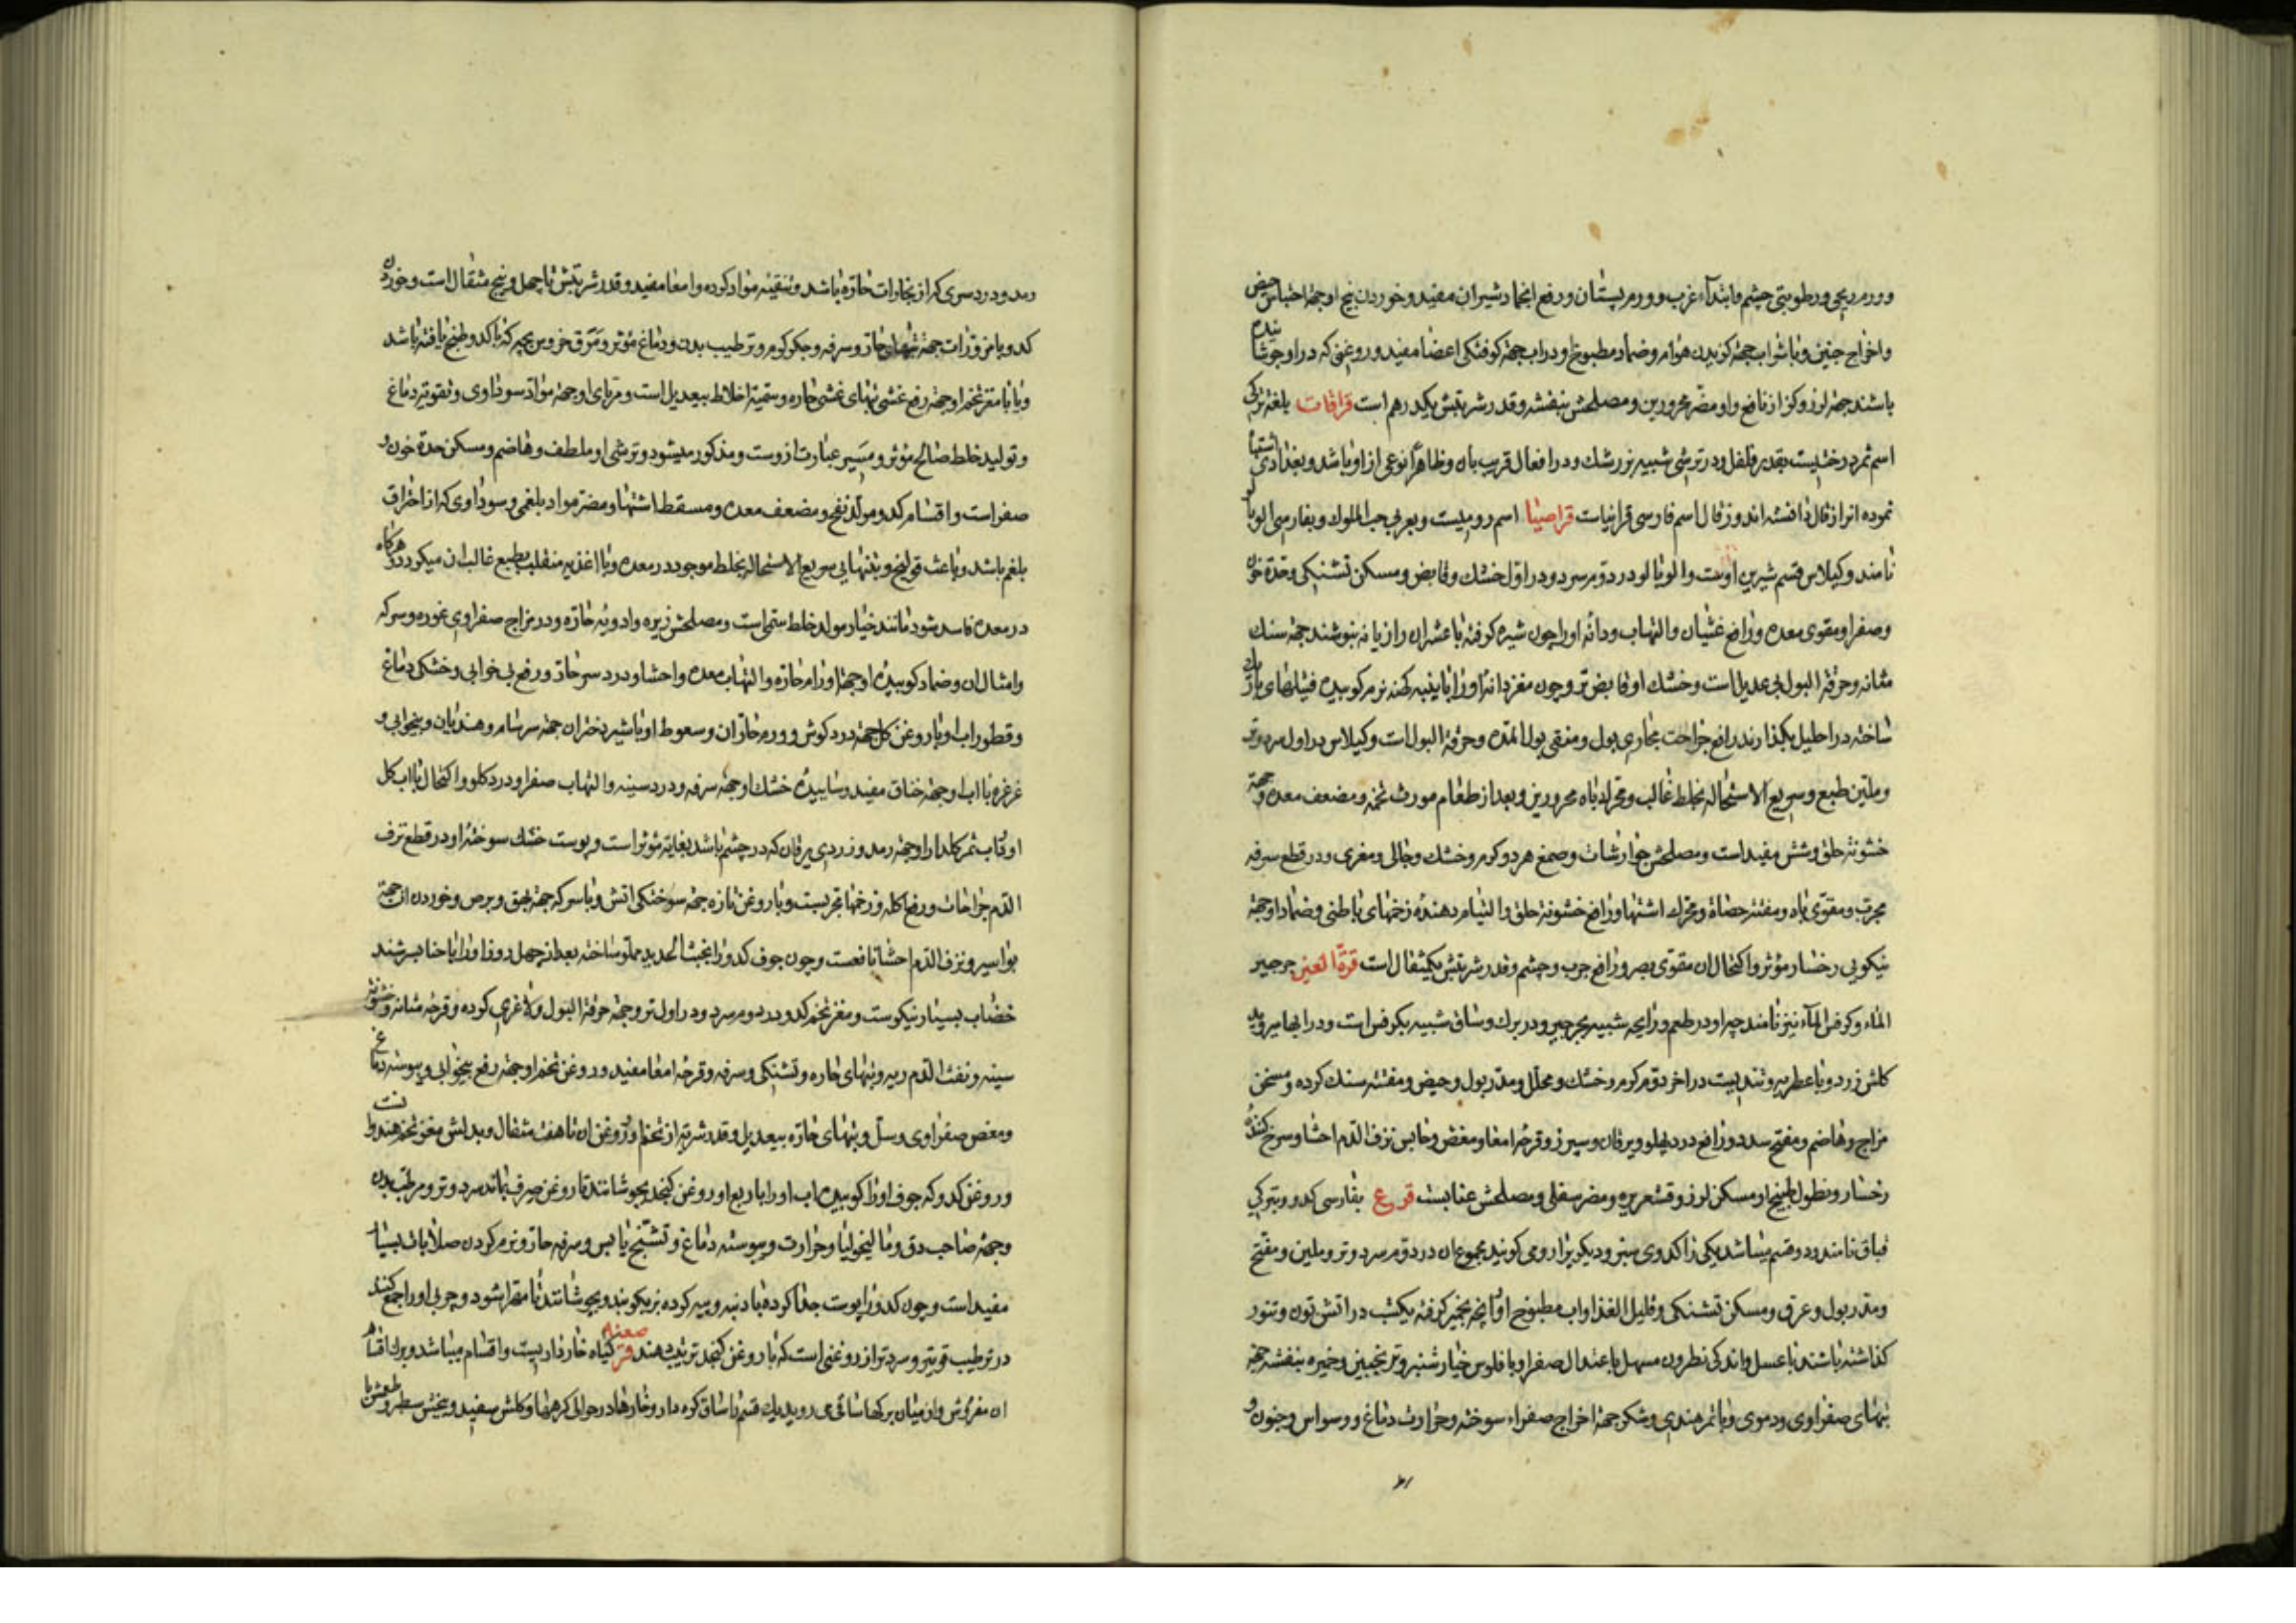 وورم ریحی ورطوبتی چشم وابتدآء غرب وورم پستان ورفع انجماد شیر ان مفید وخوردن بیخ او جهة احتباس حیض
واخراج جنین وبا شراب جهة کزیدن هوام وضماد مطبوخ او در اب جهة کوفتکی اعضا مفید وروغنی که در او جوشانیده
باشند جهة لرز وکزاز نافع واو مضر محرورین ومصلحش بنفشه وقدر شربتش یکدرهم است قراقات بلغة ترکی
اسم ثمر درختیست بقدر فلفل ودر ترشی شبیه بزرشک ودر افعال قریب بان وظاهرا نوعی از او باشد وبغدادی اشتباه
نموده انرا زقال دانسته اند وزقال اسم فارسی قرانیاست قراصیا اسم رومیست وبعربی حب الملوک وبفارسی الوبالو
نامند وکیلاس قسم شیرین اوست والوبالو در دوم سرد ودر اول خشک وقابض ومسکن تشنکی وحدة خون
وصفرا ومقوی معده ورافع غثیان والتهاب ودانه او را چون شیره کرفته با عشر ان رازیانه بنوشند جهة سنک
مثانه وحرقة البول بی عدیل است وخشک او قابض تر وچون مغز دانه او را با پنبه کهنه نرم کوبیده فتیلهای باریک
ساخته در احلیل بکذارند رافع جراحت مجاری بول ومنقی بول المده وحرقة البول است وکیلاس در اول سرد وتر
وملین طبع وسریع الاستحاله بخلط غالب ومحرک باه محرورین وبعد از طعام مورث تخمه ومضعف معده وجهة
خشونة حلق وشش مفید است ومصلحش جوارشات وصمغ هر دو کرم وخشک وجالی ومغری ودر قطع سرفه
مجرب ومقوی باه ومفتت حصاة ومحرک اشتها ورافع خشونة حلق والتیام دهنده زخمهای باطنی وضماد او جهة
نیکویی رخسار مؤثر واکتحال ان مقوی بصر ورافع جرب وچشم وقدر شربتش یکمثقال است قرة العین جرجیر
الماء وکرفس المآء نیز نامند چه او در طعم ورایحه شبیه بجرجیر ودر برک وساق شبیه بکرفس است ودر ابها میروید
کلش زرد وبا عطریه وتندیست در اخر دوم کرم وخشک ومحلل ومدر بول وحیض ومفتت سنک کرده ومسخن
مزاج وهاضم ومفتح سدد ورافع درد پهلو ویرقان وسپرز وقرحه امعا ومغص وحابس نزف الدم احشا وسرخ کننده
رخسار ونطول طبیخ او مسکن لرز وقشعریره ومضر سفلی ومصلحش عنابست قرع بفارسی کدو وبترکی
قباق نامند ودو قسم میباشد یکی را کدوی سبز ودیکریرا رومی کویند مجموع ان در دوم سرد وتر وملین ومفتح
ومدر بول وعرق ومسکن تشنکی وقلیل الغذا واب مطبوخ او انچه بخمیر کرفته یکشب در اتش تون وتنور
کذاشته باشند با عسل واندکی نطرون مسهل باعتدال صفرا وبا فلوس خیارشنبر وترنجبین وخمیره بنفشه جهة
تبهای صفراوی ودموی وبا تمر هندی وشکر جهة اخراج صفراء سوخته وحرارت دماغ ووسواس وجنون و
رمد ودرد سری که از بخارات حاره باشد وتنقیه مواد کرده وامعا مفید وقدر شربتش تا چهل وپنج مثقال است وخوردن
کدو با مزورات جهة تبهای حار وسرفه وجکر کرم وترطیب بدن ودماغ مؤثر ومرق خروس بچه که با کدو طبخ یافته باشد
ویا با مغز تخم او جهة رفع غشی تبهای غشی حاره وسمیة اخلاط بیعدیل است ومربای او جهة مواد سوداوی وتقویه دماغ
وتولید خلط صالح مؤثر ومسیر عبارت از وست ومذکور میشود وترشی او ملطف وهاضم ومسکن حدة خون و
صفراست واقسام کدو مولد نفخ ومضعف معده ومسقط اشتها ومضر مواد بلغمی وسوداوی که از احتراق
بلغم باشد وباعث قولنج وبتنهایی سریع الاستحاله بخلط موجود در معده وبا اغذیه منقلب بطبع غالب ان میکردد وهرکاه
در معده فاسد شود مانند خیار مولد خلط سمی است ومصلحش زیره وادویه حاره ودر مزاج صفراوی غوره وسرکه
وامثال ان وضماد کوبیدهٔ او جهة اورام حاره والتهاب معده واحشا ودرد سر حار ورفع بی خوابی وخشکی دماغ
وقطور اب او با روغن کل جهة درد کوش وورم حار ان وسعوط او با شیر دختران جهة سرسام وهذیان وبیخوابی و
غرغره با اب او جهة خناق مفید وساییدهٔ خشک او جهة سرفه ودرد سینه والتهاب صفرا ودرد کلو واکتحال با اب کل
او وآب ثمر کلدار او جهة رمد وزردی یرقان که در چشم باشد بغایة مؤثر است وپوست خشک سوختهٔ او در قطع نزف
الدم جراحات ورفع اکله وزخمها مجربست وبا روغن تازه جهة سوختکی اتش وبا سرکه جهة بهق وبرص وخوردن ان جهة
بواسیر ونزف الدم احشا نافعست وچون جوف کدو را بخبث الحدید مملو ساخته بعد از چهل روز او را با حنا بسرشند
خضاب بسیار نیکوست ومغز تخم کدو در دوم سرد ودر اول تر وجهة حرقة البول ولاغری کرده وقرحه مثانه وخشونة
سینه ونفث الدم ریه وتبهای حاره وتشنکی وسرفه وقرحه امعا مفید وروغن تخم او جهة رفع بیخوابی ویبوسة دماغ
ومغص صفراوی وسل وتبهای حاره بیعدیل وقدر شربة از تخم او وروغن ان تا هفت مثقال وبدلش مغز تخم هندوانه است
وروغن کدو که جوف او را کوبیده اب او را با ربع او روغن کنجد بجوشانند تا روغن صرف بماند سرد وتر ومرطب بدن
وجهة صاحب دق ومالیخولیا وحرارت ویبوسة دماغ وتشنج یابس وسرفه حار ونرم کردن صلابات بسیار
مفید است وچون کدو را پوست جدا کرده با دنبه وپیه کرده بز بکوبند وبجوشانند تا مهرا شود وچربی او را جمع کنند
در ترطیب قویتر وسردتر از روغنی است که با روغن کنجد ترتیب دهند قرصعنه کیاه خارداریست واقسام میباشد وبرک اقسام
ان مفروش واز میان برکها ساقی میروید یک قسم با ساق کوه دار وخارها در حوالی کرهها وکلش سفید وبیخش سطبر وطعمش با